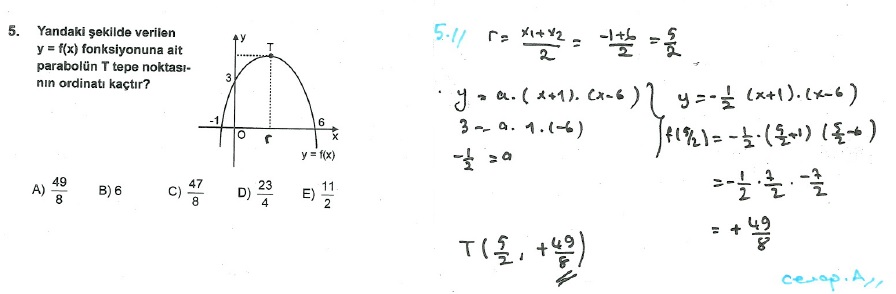 5. Yandaki şekilde verilen
y = f(x) fonksiyonuna ait
parabolün T tepe noktası-
nın ordinatı kaçtır?
y
T
3
-1
O
r
6
x
y = f(x)
A) 49/8 B) 6 C) 47/8 D) 23/4 E) 11/2
5-//
r = (x₁+x₂)/2 = (-1+6)/2 = 5/2
y = a.(x+1).(x-6)
3 = a.1.(-6)
-1/2 = a
y = -1/2 (x+1).(x-6)
f(5/2) = -1/2.(5/2+1)(5/2-6)
= -1/2 . 7/2 . -7/2
= +49/8
T(5/2, +49/8)
cevap.A//